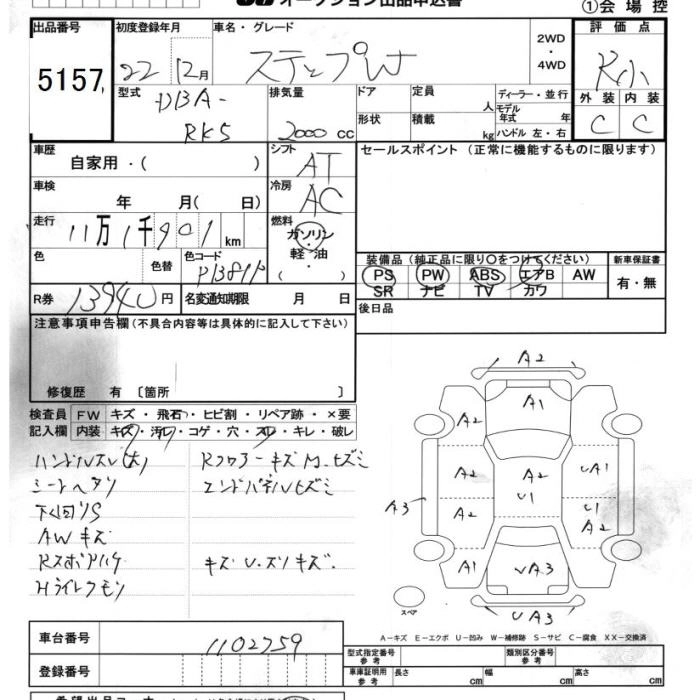 オークション出品申込書
①会場控
出品番号 初度登録年月 車名・グレード 2WD・4WD 評価点
5157 22 12月 ステップW R小
型式 排気量 ドア 定員 人 ディーラー・並行 外装 内装
DBA-RK5 2000cc 形状 積載 kg モデル年式 年 ハンドル 左・右 C C
車歴 自家用・( ) シフト AT セールスポイント (正常に機能するものに限ります)
車検 年 月( 日) 冷房 AC
走行 11万1千901km 燃料 ガソリン・軽油・( )
色 色替 色コード 装備品 (純正品に限り○をつけてください) 新車保証書
PS PW ABS エアB AW 有・無
SR ナビ TV カワ
R券 13940円 名変通知期限 月 日 後日品
注意事項申告欄 (不具合内容等は具体的に記入して下さい)
修復歴 有 〔箇所 〕
検査員記入欄 FW キズ・飛石・ヒビ割・リペア跡・×要
内装 キズ・汚レ・コゲ・穴・スレ・キレ・破レ
ハンドルスレ(大) Rフロアーキズ M.ヒズミ
シートヘタリ エンドパネルヒズミ
下回りS
AWキズ
キズ U.スリキズ.
Hライトクモリ
A2
A1
A2
A2 A2 U1 UA1
A3 A2 U1 A2
A1 UA3
スペア
UA3
A-キズ E-エクボ U-凹み W-補修跡 S-サビ C-腐食 XX-交換済
車台番号 1102759
登録番号
型式指定番号 参考 類別区分番号 参考
車庫証明用 参考 長さ cm 幅 cm 高さ cm